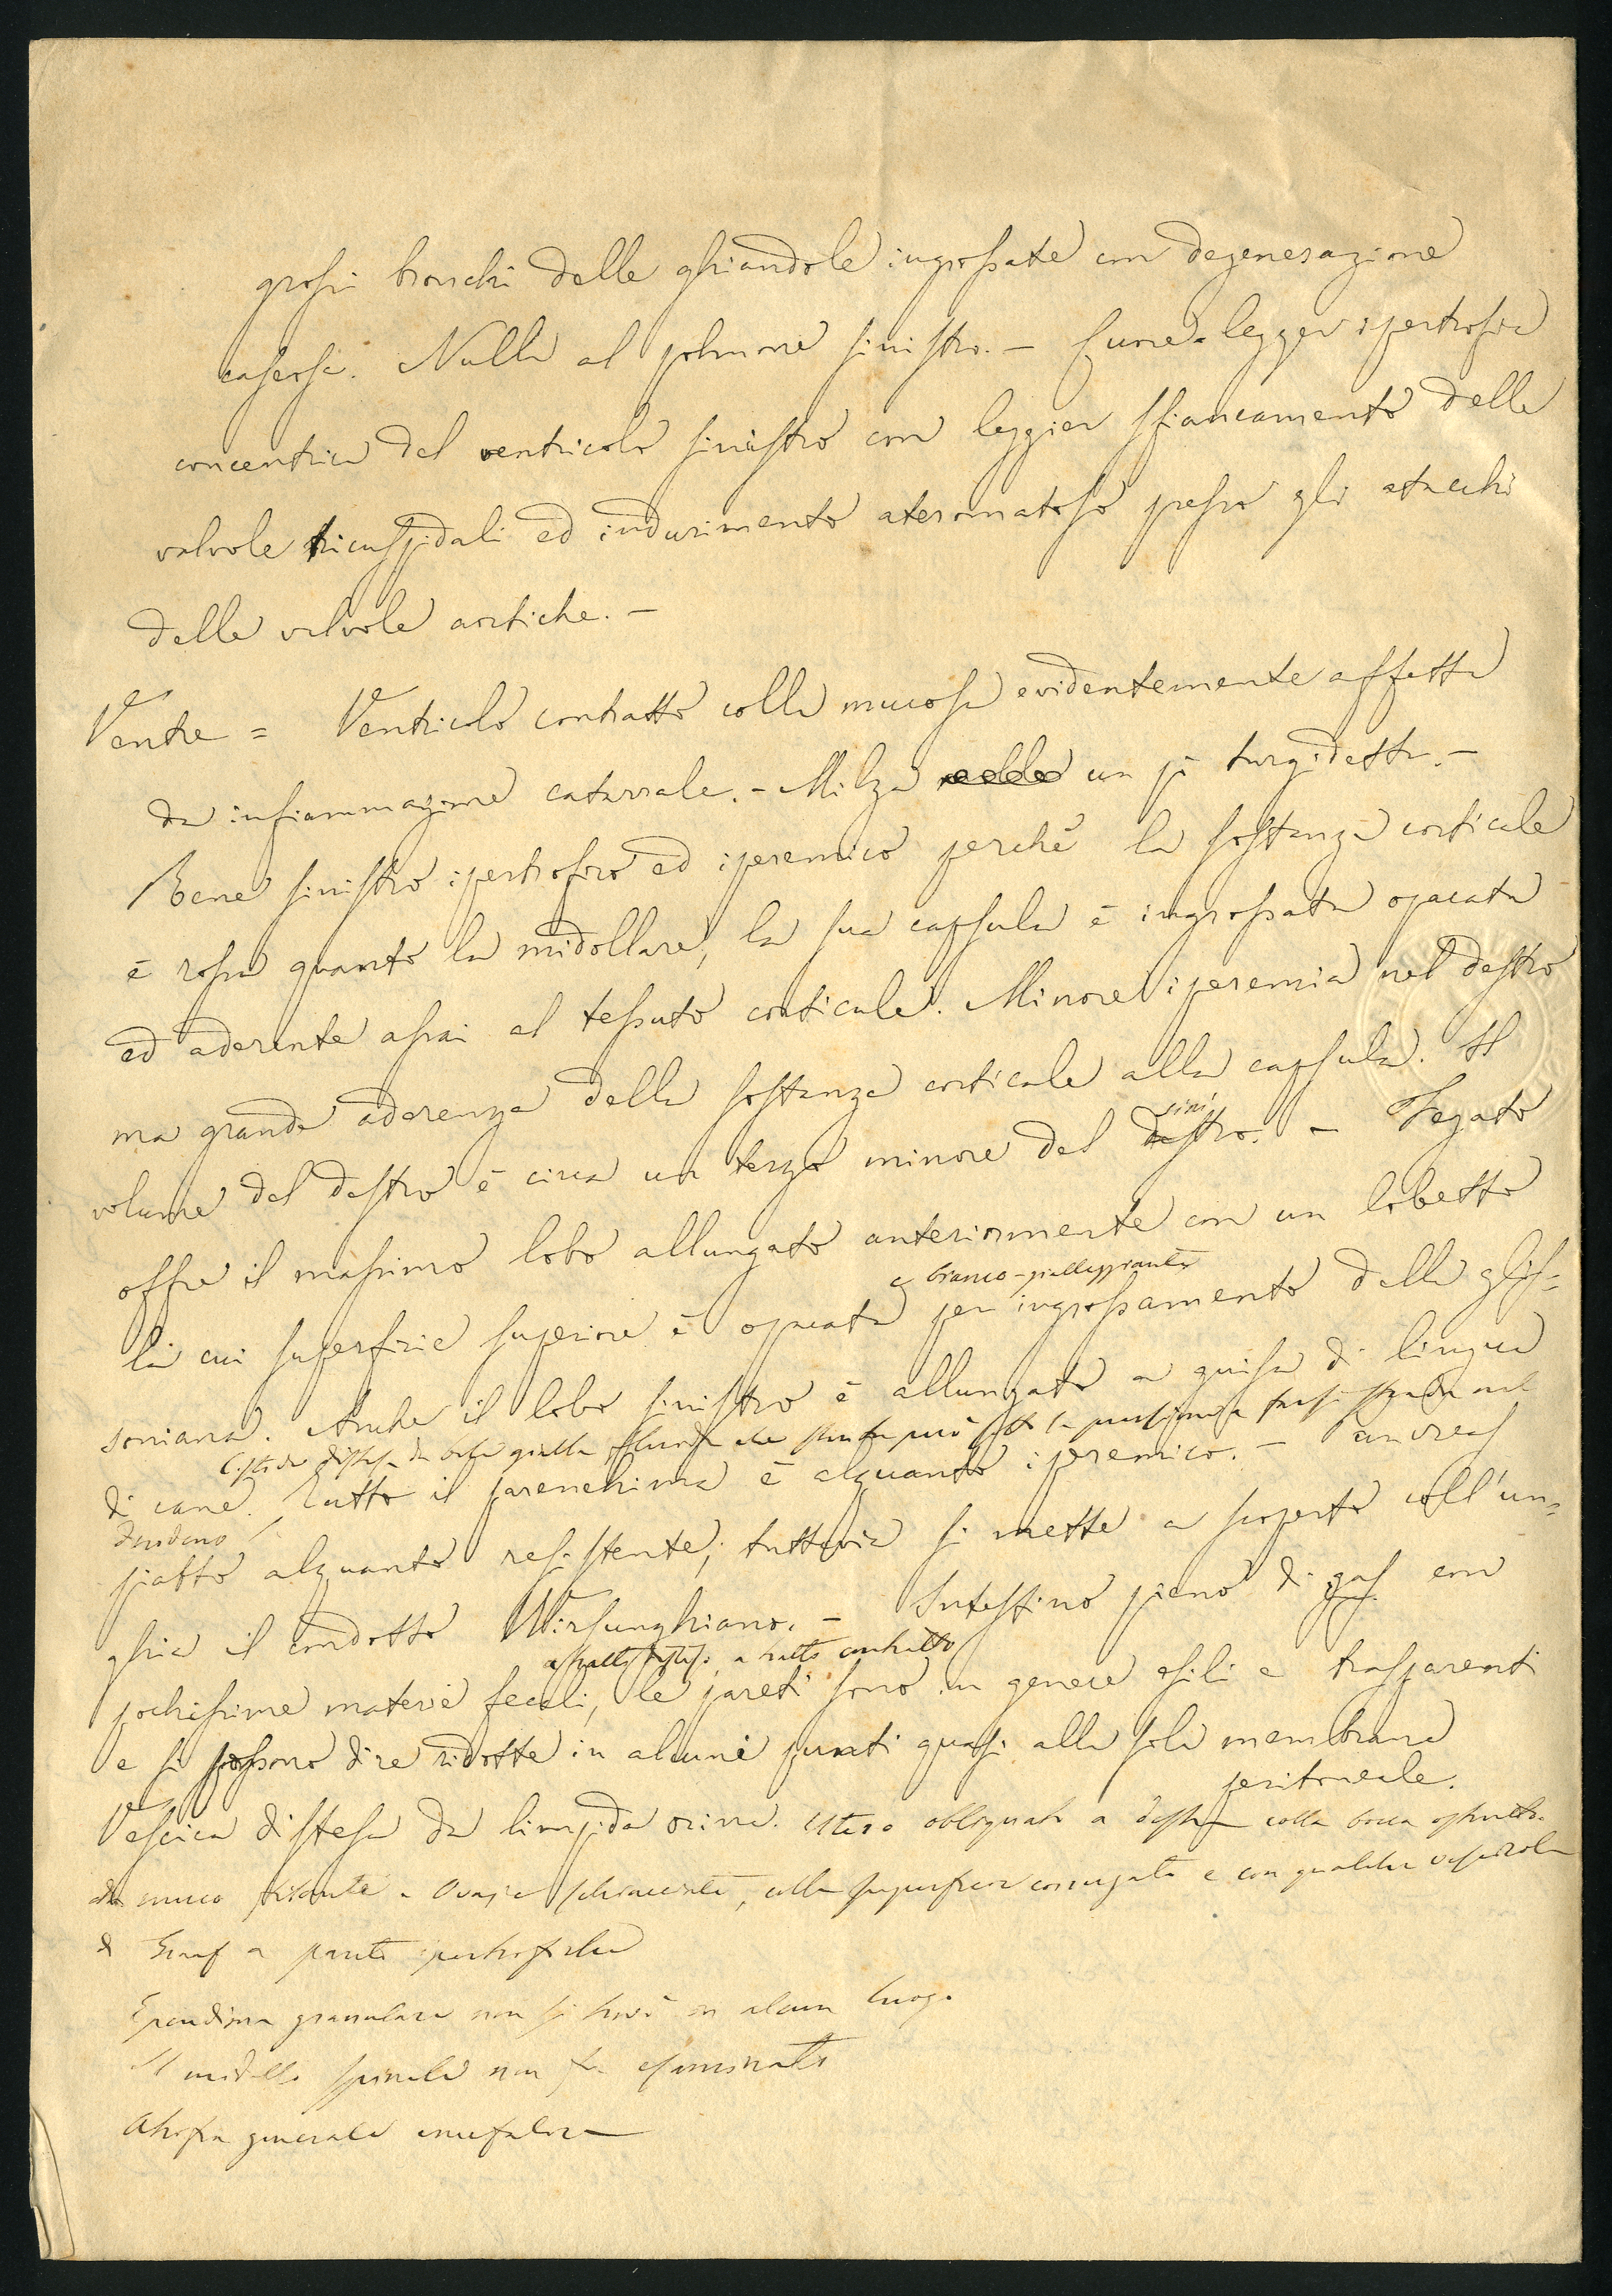 grossi bronchi delle ghiandole ingrossate con degenerazione
caseosa. Nulla al polmone sinistro. — Cuore = legger ipertrofia
concentrica del ventricolo sinistro con leggier sfiancamento delle
valvole tricuspidali ed indurimento ateromatoso presso gli attacchi
delle valvole aortiche. —
Ventre = Ventricolo contratto colla mucosa evidentemente affetta
da infiammazione catarrale. — Milza un pò turgidetta. —
Rene sinistro ipertrofico ed iperemico perchè la sostanza corticale
è rossa quanto la midollare, la sua capsula è ingrossata opacata
ed aderente assai al tessuto corticale. Minore iperemia nel destro
ma grande aderenza della sostanza corticale alla capsula. Il
sini
volume del destro è circa un terzo minore del destro. — Fegato
offre il massimo lobo allungato anteriormente con un lobetto
e bianco-gialleggiante
la cui superfizie superiore è opacata per ingrossamento della glis=
soniana. Anche il lobo sinistro è allungato a guisa di lingua
Cistide distesa da bile gialla che
di cane. Tutto il parenchima è alquanto iperemico. — Pancreas
duodeno
piatto alquanto resistente; tuttavia si mette a scoperto coll'un=
ghia il condotto Wirsunghiano. — Intestino pieno di gas con
a tratti disteso, a tratti contratto
pochissime materie fecali, le pareti sono in genere esili e trasparenti
e si possono dire ridotte in alcuni punti quasi alla sola membrana
peritoneale.
Vescica distesa da limpida orina. Utero obliquato a destra colla bocca ostrutta
da muco filante. Ovaja, colla superficie corrugata e con qualche vescicola
di Graaf a pareti ipertrofiche
Ependima granulare non si trovò in alcun luogo
Il midollo spinale non fu esaminato
Atrofia generale encefalica